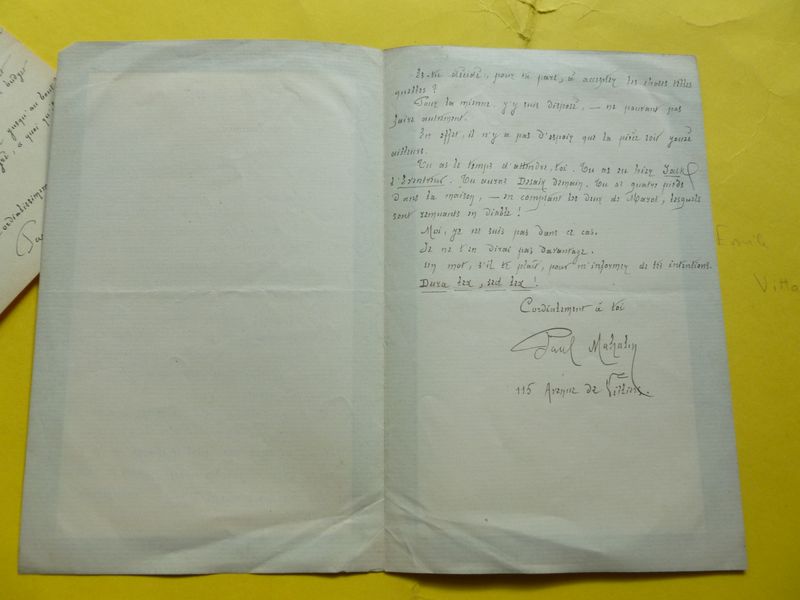 budget
jusqu'au bout
à quoi, qu'
Cordialement
Pa
Es-tu décidé, pour ta part, à accepter les choses telles
quelles ?
Pour la mienne, j'y suis disposé, — ne pouvant pas
faire autrement.
En effet, il n'y a pas d'espoir que la pièce soit jouée
ailleurs.
Tu as le temps d'attendre, toi. Tu as eu hier Jack
l'Eventreur. Tu auras Desaix demain. Tu as quatre pieds
dans la maison, — en comptant les deux de Marot, lesquels
sont remuants en diable !
Moi, je ne suis pas dans ce cas.
Je ne t'en dirai pas davantage.
Un mot, s'il te plaît, pour m'informer de tes intentions.
Dura lex, sed lex !
Cordialement à toi
Paul Mahalin
115 Avenue de Villiers.
Emile
Vitta